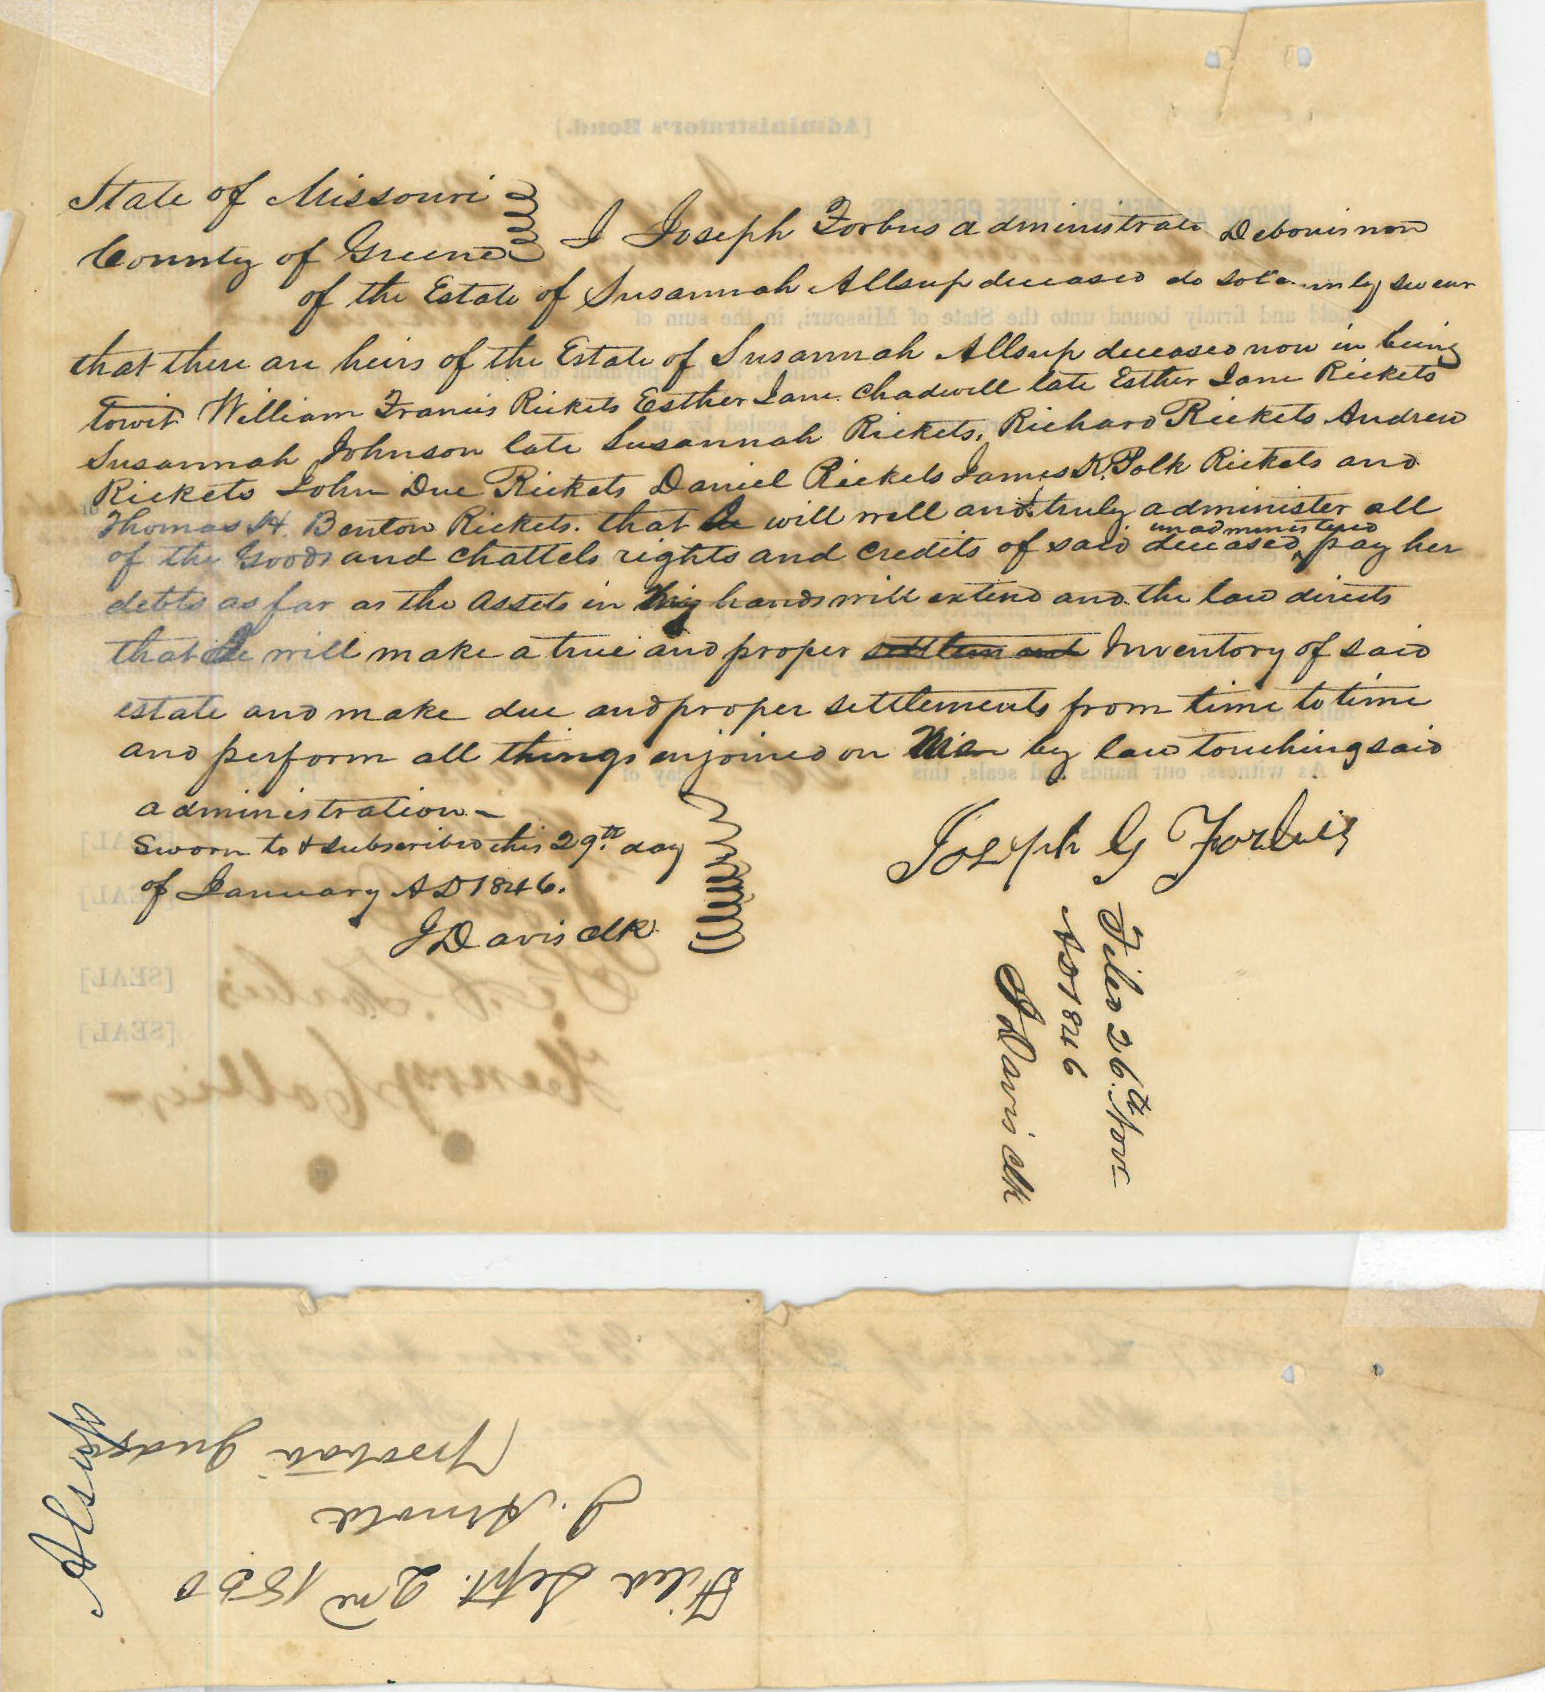 State of Missouri
County of Greene I Joseph Forbus administrate Debonis non
of the Estate of Susannah Allsup deceased do solemnly swear
that there are heirs of the Estate of Susannah Allsup deceased now in being
towit William Francis Rickets Esther Jane Chadwell late Esther Jane Rickets
Susannah Johnson late Susannah Rickets, Richard Rickets Andrew
Rickets John Due Rickets Daniel Rickets James K. Polk Rickets and
Thomas H. Benton Rickets. that he will well and truly administer all
of the Goods and chattels rights and credits of said deceased unadministered pay her
debts as far as the Assets in his hands will extend and the law directs
that he will make a true and proper settlem and Inventory of said
estate and make due and proper settlements from time to time
and perform all things enjoined on him by law touching said
administration –
Sworn to & subscribed this 29th day
of January AD 1846.
J Davis clk
Joseph G Forbus
Filed 26th Nov
AD 1846
J Davis clk
[Administrator's Bond.]
KNOW ALL MEN BY THESE PRESENTS
held and firmly bound unto the State of Missouri, in the sum of
sealed by us,
As witness, our hands and seals, this day of
[SEAL]
[SEAL]
[SEAL]
[SEAL]
Forbis
Henry Collier
Alsup
Filed Sept. 2nd 1850
J. Arnold
Probate Judge